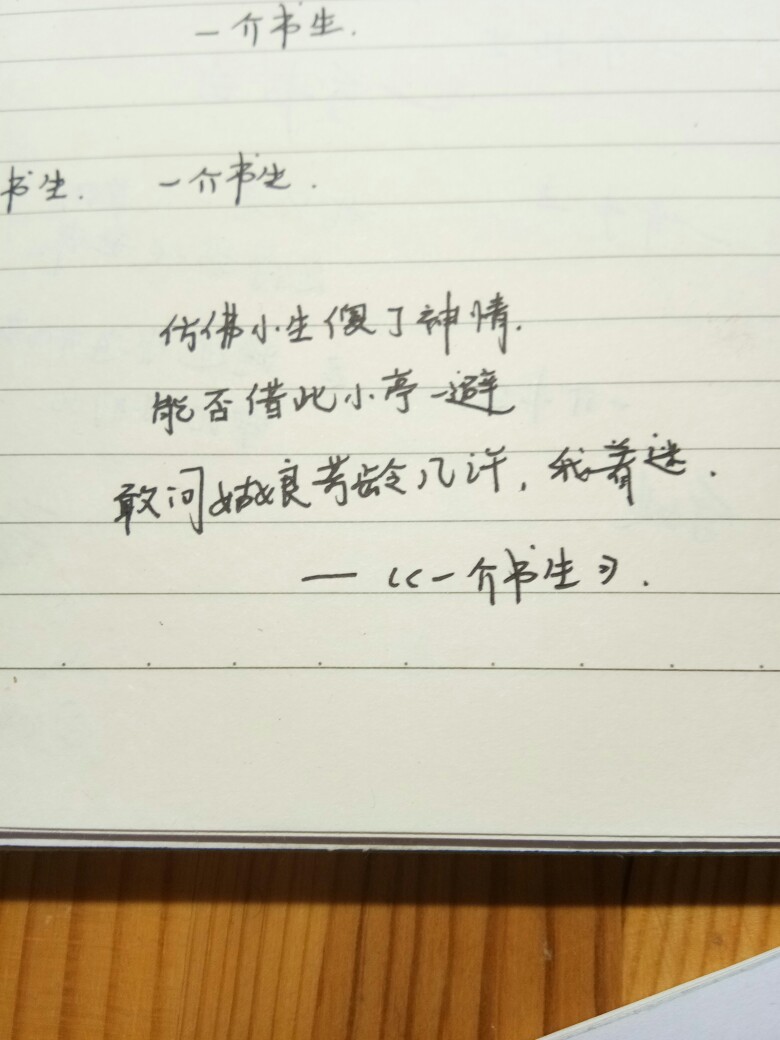 一介书生.
书生. 一介书生.
仿佛小生傻了神情.
能否借此小亭一避
敢问姑娘芳龄几许,我着迷.
—《一介书生》.